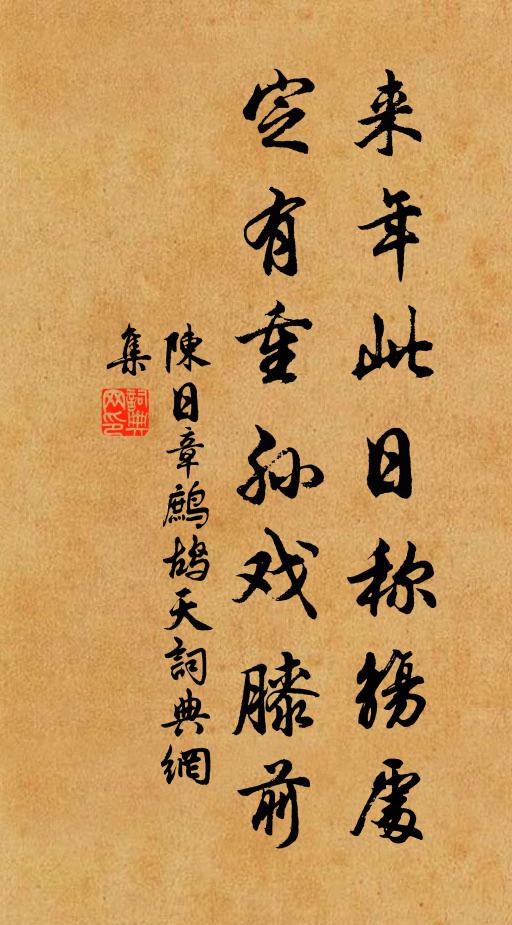 来年此日称觴處
定有重孙戏膝前
陳日章鷓鴣天詞典網
集
詞典
网印